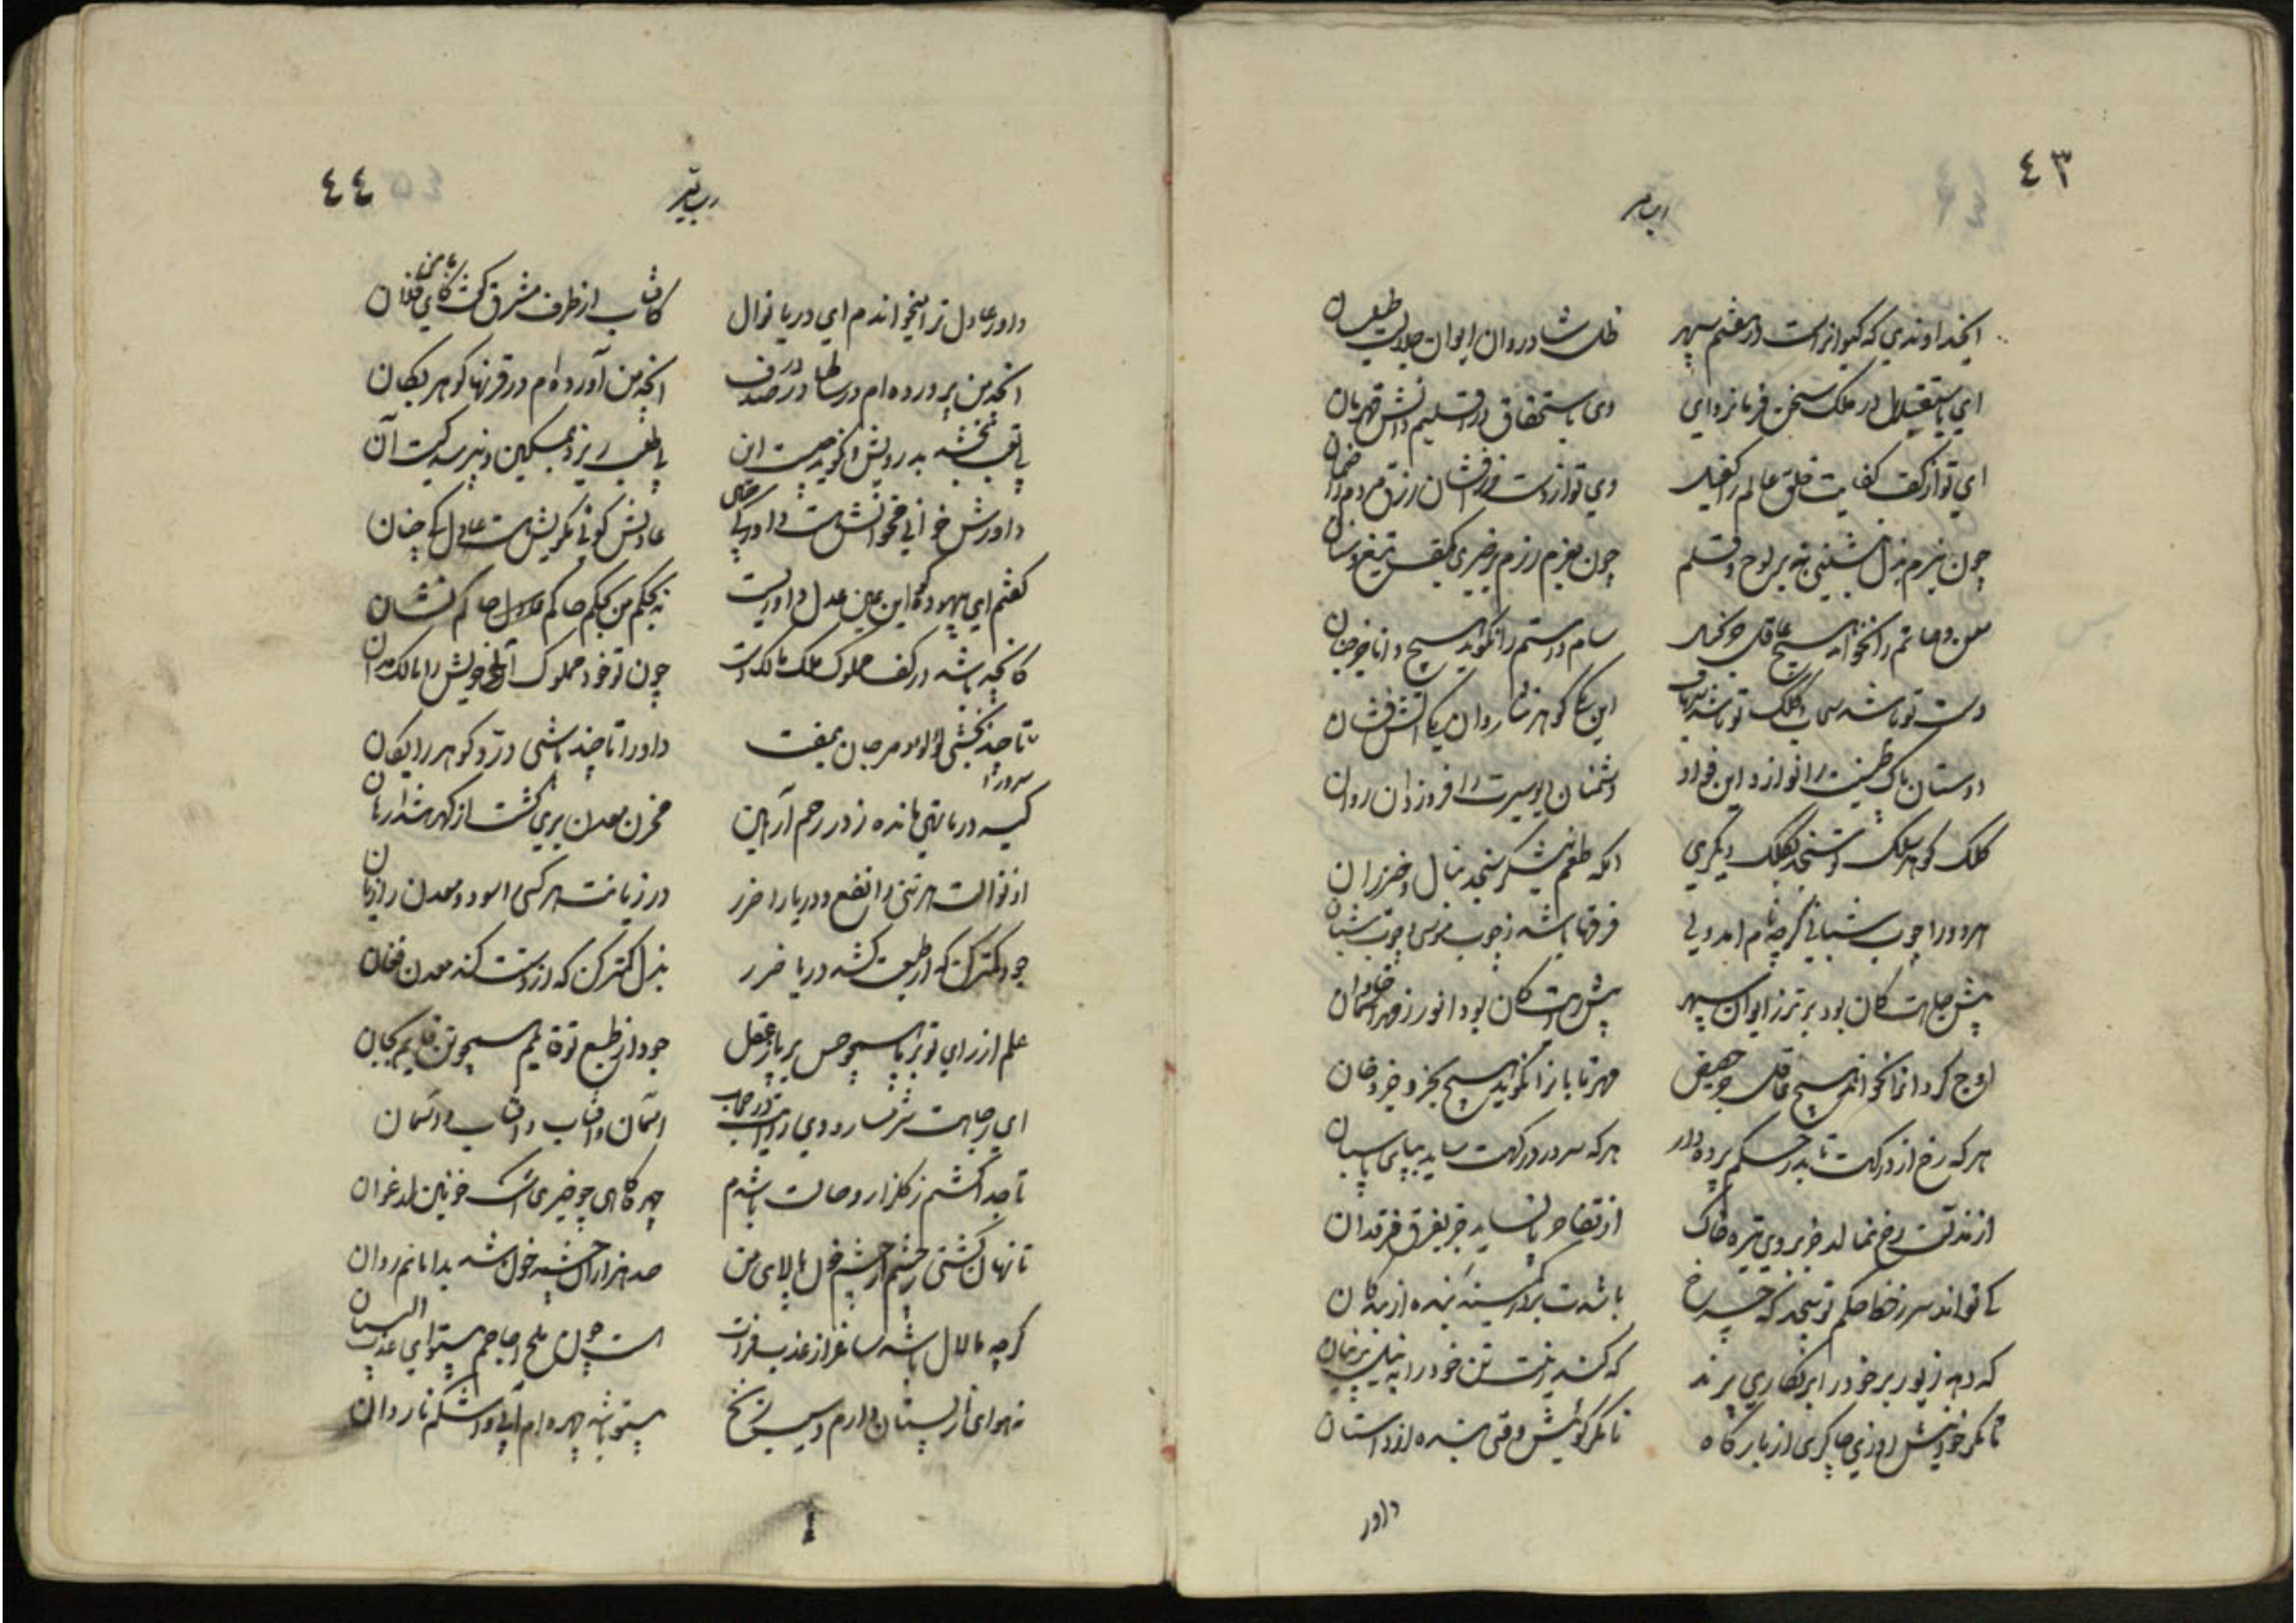 ٤٣
ایخداوندی که کیوانراست در هفتم سپهر ظل شادروان ایوان جلالت طیلسان
ای باستقلال در ملک سخن فرمانروای وی باستحقاق در اقلیم دانش قهرمان
ای تو از کف کفایت خلق عالم را کفیل وی تو از دست زرافشان رزق مردم را ضمان
چون ببزم بذل بنشینی بنه بر لوح و قلم چون بعزم رزم برخیزی بکف تیغ و سنان
معن و حاتم را نخواند هیچ عاقل جز بخیل سام و رستم را نگوید هیچ دانا جز جبان
دست تو باشد سحاب و کلک تو باشد شهاب این یکی گوهر فشان و آن یکی آتش فشان
دوستان پاک طینت را نوازد این فواد دشمنان دیو سیرت را فروزد آن روان
کلک گوهر سلک تو سنجد بکلک دیگری آنکه طعم نیشکر سنجد بنال و خیزران
هر دو را چوب شبانی گرچه نام آمد ولی فرقها باشد ز چوب موسی و چوب شبان
پیش جاهت کان بود برتر ز ایوان سپهر پیش رایت کان بود انور ز مهر آسمان
اوج گردانرا نخواند هیچ عاقل جز حضیض مهر تابانرا نگوید هیچ بخرد جز دخان
هر که رخ از درگهت تابد در حکم پرده دار هر که سر در درگهت ساید بپای پاسبان
از مذلت رخ نمالد جز بروی تیره خاک از تفاخر پا نساید جز بفرق فرقدان
کی تواند سر ز خط حکم تو پیچد که چرخ باشدت بر در کمینه بنده از بندگان
که دهد زیور بر خود را بر نگاری پرند که کند زینت تن خود را به نیلی پرنیان
تا مگر خوانیش روزی چاکری از بارگاه تا مگر گوئیش وقتی بنده از آستان
داور
٤٤
داور عادل ترا میخواندم ای دریا نوال کافتاب از طرف مشرق گفت با من کای فلان
آنچه من پرورده ام در سالها در در صدف آنچه من آورده ام در قرنها گوهر بکان
بی تعب بخشد بدرویش و نگوید چیست این بی طلب ریزد بمسکین و نپرسد کیست آن
داورش خوانی مخوانش نیست داور این چنین عادلش گوئی مگویش نیست عادل آنچنان
گفتم ای بیهوده گو این عین عدل و داوریست نه بحکم من بحکم حاکم عادل حاکم نشان
کانچه باشد در کف مملوک ملک مالک است چون تو خود مملوک اوئی خویش را مالک مدان
سرورا تا چند بخشی لؤلؤ و مرجان بمفت داورا تا چند پاشی در و گوهر رایگان
کیسه دریا تهی مانده ز در رحم آر هین مخزن معدن بری گشت از گهر هشدار هان
از نوالت هر تنی را نفع و دریا را ضرر در زیانت هر کسی را سود و معدن را زیان
جود کمتر کن که از طبعت کشد دریا ضرر بذل کمتر کن که از دستت کند معدن فغان
علم از رای تو برپا همچو حس برپا ز عقل جود از طبع تو قایم همچو تن قایم بجان
ای ز جاهت شرمسار و وی ز رایت در حجاب آسمان و آفتاب و آفتاب و آسمان
تا جدا گشتم ز گلزار وصالت باشدم چهر کاهی چو خیری اشک خونین ارغوان
تا نهان گشتی ز چشمم از چشم خون پالای من صد هزاران چشمه خون شد بدامانم روان
گرچه مالامال باشد ساغر از عذب فرات هست چون ملح اجاجم بیتو ای عذب اللسان
نه هوای نار پستان دارم و سیب زنخ بیتو باشد چهره ام آبی و اشکم ناردان